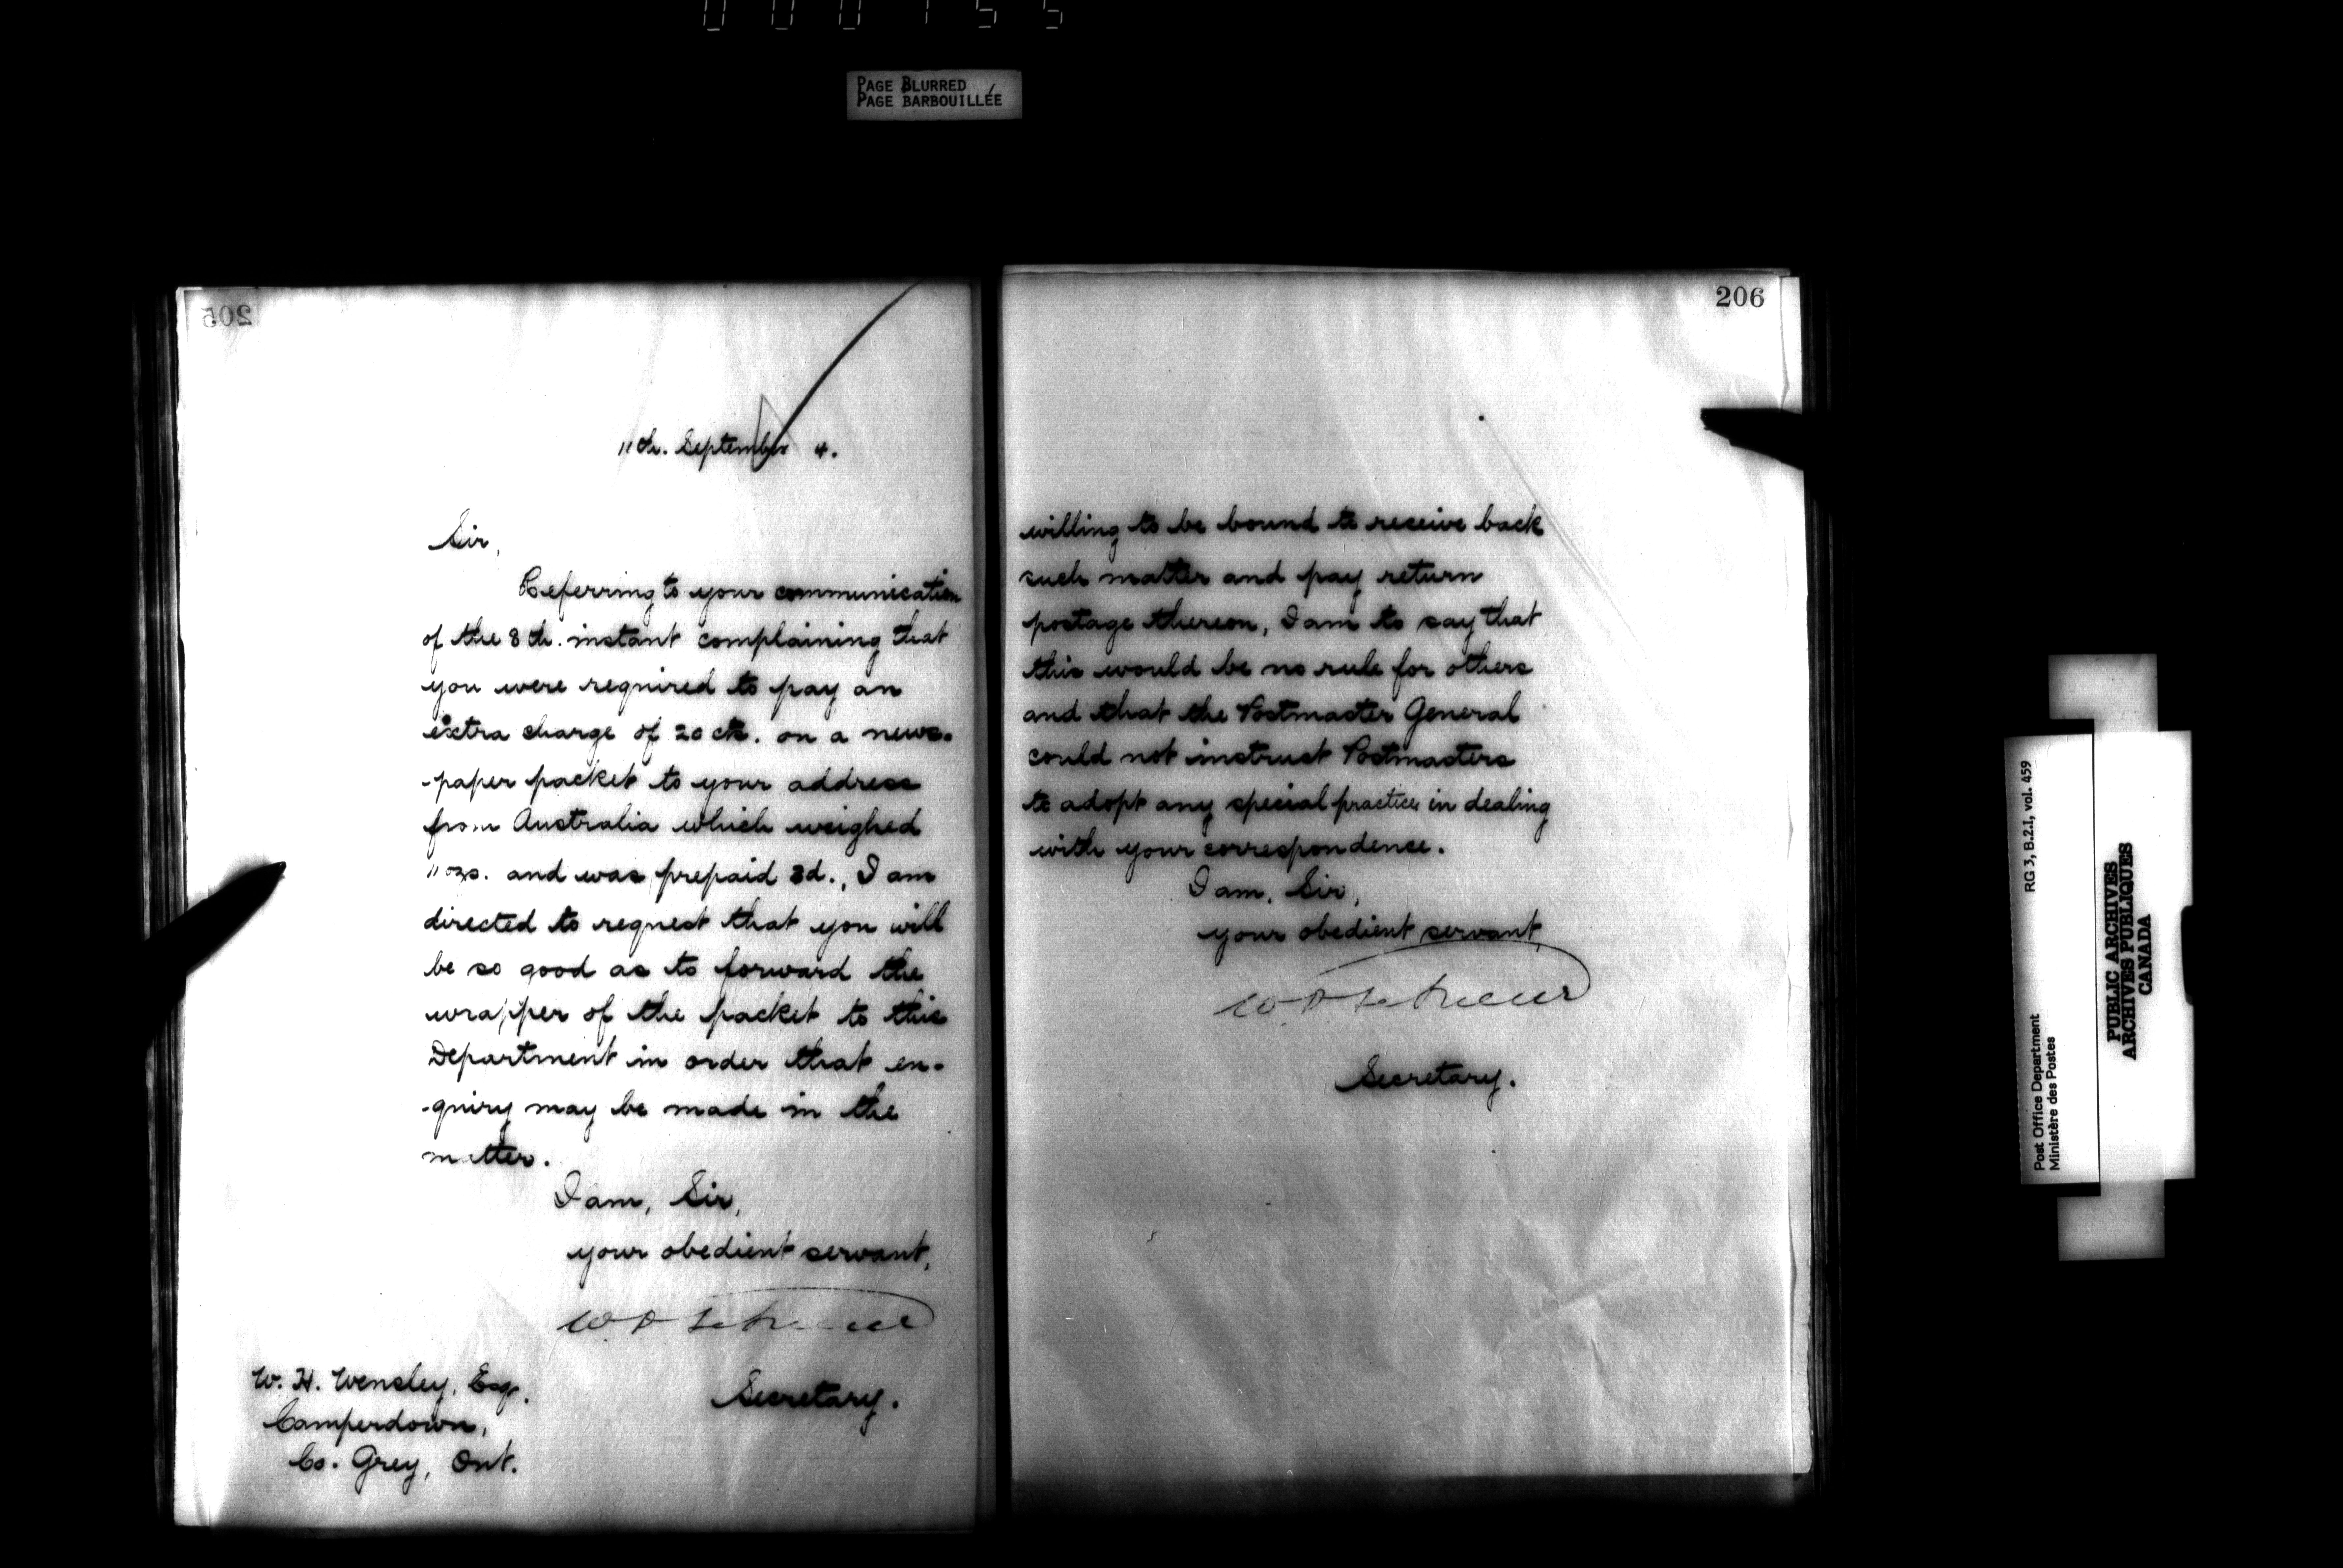 000155
PAGE BLURRED
PAGE BARBOUILLÉE
205
11th. September 4.
Sir,
Referring to your communication
of the 8th. instant complaining that
you were required to pay an
extra charge of 20 cts. on a news-
-paper packet to your address
from Australia which weighed
11 ozs. and was prepaid 3d., I am
directed to request that you will
be so good as to forward the
wrapper of the packet to this
Department in order that en-
-quiry may be made in the
matter.
I am, Sir,
your obedient servant,
Secretary.
W. H. Wensley, Esq.
Camperdown,
Co. Grey, Ont.
206
willing to be bound to receive back
such matter and pay return
postage thereon, I am to say that
this would be no rule for others
and that the Postmaster General
could not instruct Postmasters
to adopt any special practice in dealing
with your correspondence.
I am, Sir,
your obedient servant,
Secretary.
Post Office Department
Ministère des Postes
RG 3, B.2.1, vol. 459
PUBLIC ARCHIVES
ARCHIVES PUBLIQUES
CANADA